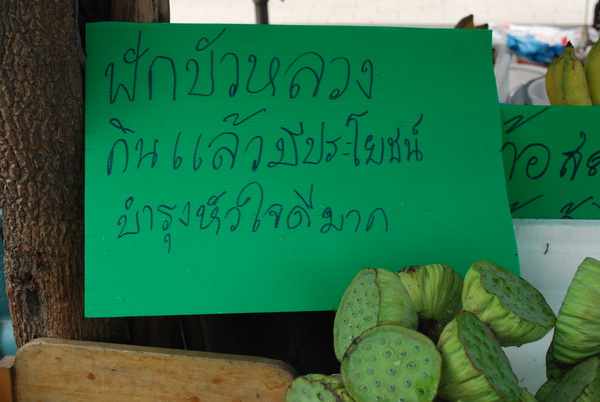 ฝักบัวหลวง
กินแล้วมีประโยชน์
บำรุงหัวใจดีมาก